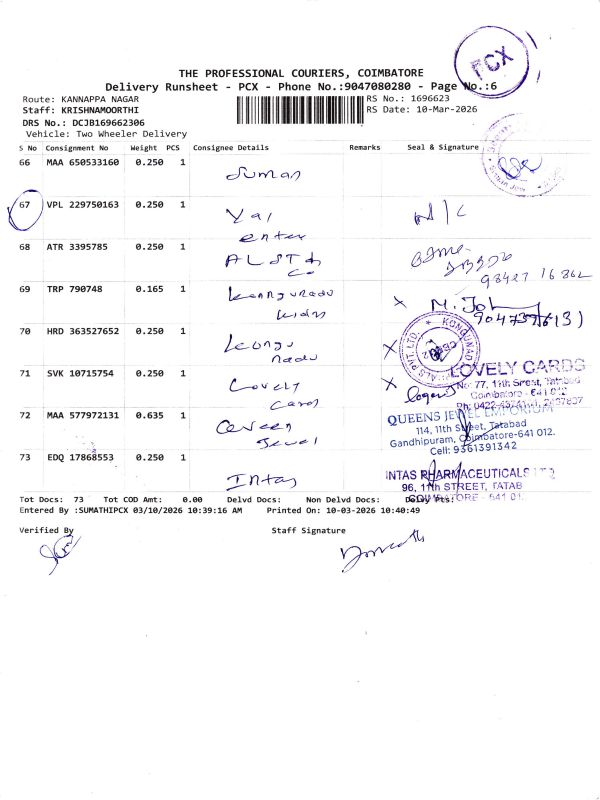 PCX
THE PROFESSIONAL COURIERS, COIMBATORE
Delivery Runsheet - PCX - Phone No.:9047080280 - Page No.:6
Route: KANNAPPA NAGAR
RS No.: 1696623
Staff: KRISHNAMOORTHI
RS Date: 10-Mar-2026
DRS No.: DCJB169662306
Vehicle: Two Wheeler Delivery
S No Consignment No Weight PCS Consignee Details Remarks Seal & Signature
66 MAA 650533160 0.250 1 Suman
67 VPL 229750163 0.250 1 Yal N/C
enter
68 ATR 3395785 0.250 1 ALSTA
Co 98427
69 TRP 790748 0.165 1 Kongunadu X M. John
kidn
70 HRD 363527652 0.250 1 Kongu X
nadu
71 SVK 10715754 0.250 1 Lovely X LOVELY CARDS
Cards No: 77, 11th Street, Tatabad
Coimbatore - 641 012
72 MAA 577972131 0.635 1 Queen QUEENS JEWEL EMPORIUM
Jewel 114, 11th Street, Tatabad
Gandhipuram, Coimbatore-641 012.
Cell: 9361391342
73 EDQ 17868553 0.250 1 Intas INTAS PHARMACEUTICALS LTD
96, 11th STREET, TATAB
COIMBATORE - 641 01
Tot Docs: 73 Tot COD Amt: 0.00 Delvd Docs: Non Delvd Docs: Delay Pts:
Entered By :SUMATHIPCX 03/10/2026 10:39:16 AM Printed On: 10-03-2026 10:40:49
Verified By Staff Signature